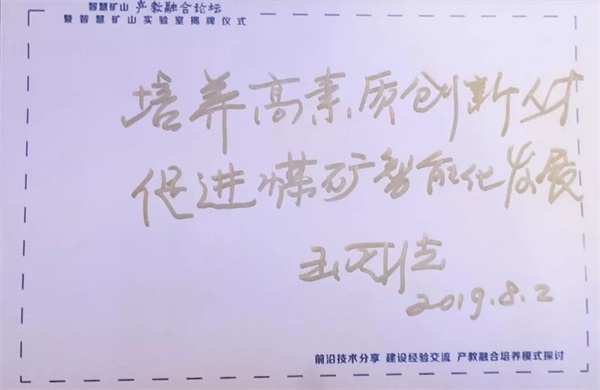 智慧矿山 产教融合论坛
暨智慧矿山实验室揭牌仪式
培养高素质创新人才
促进煤矿智能化发展
2019.8.2
前沿技术分享 建设经验交流 产教融合培养模式探讨